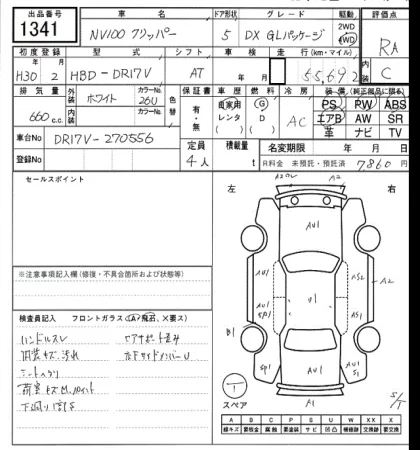 出品番号 車名 ドア形状 グレード 駆動 評価点
1341 NV100 クリッパー 5 DX GLパッケージ 2WD 4WD RA
初度登録 型式 シフト 車検 走行(km・マイル) 装備(純正部品に限る) 内装
H30年 2月 HBD-DR17V AT 年 月 55,692 C
排気量 外装 カラーNo. 色替 保証書 車歴 燃料 冷房 装備
660cc ホワイト 26U 有・無 自家用 レンタ ( ) G D AC PS PW ABS
内装 カラーNo. エアB AW SR
革 ナビ TV
車台No DR17V-270556 定員 積載量 名変期限 年 月 日
登録No 4人 t R料金 未預託・預託済 7860円
セールスポイント
左 右
A2 A2
AU1
AU1 AS2
A2
U1
AU1 SP1 AS1
B1
SP1 AU1 S1
A1
S/T
スペア
※注意事項記入欄(修復・不具合箇所および状態等)
検査員記入 フロントガラス(A>飛石、×要ス)
ハンドルスレ
内装キズ、汚れ
シートヘタリ
荷室キズ
下廻り
A B C P S U W XX X
線キズ 要板金 腐食 要塗装 サビ 凹凸 補修跡 交換跡 要交換